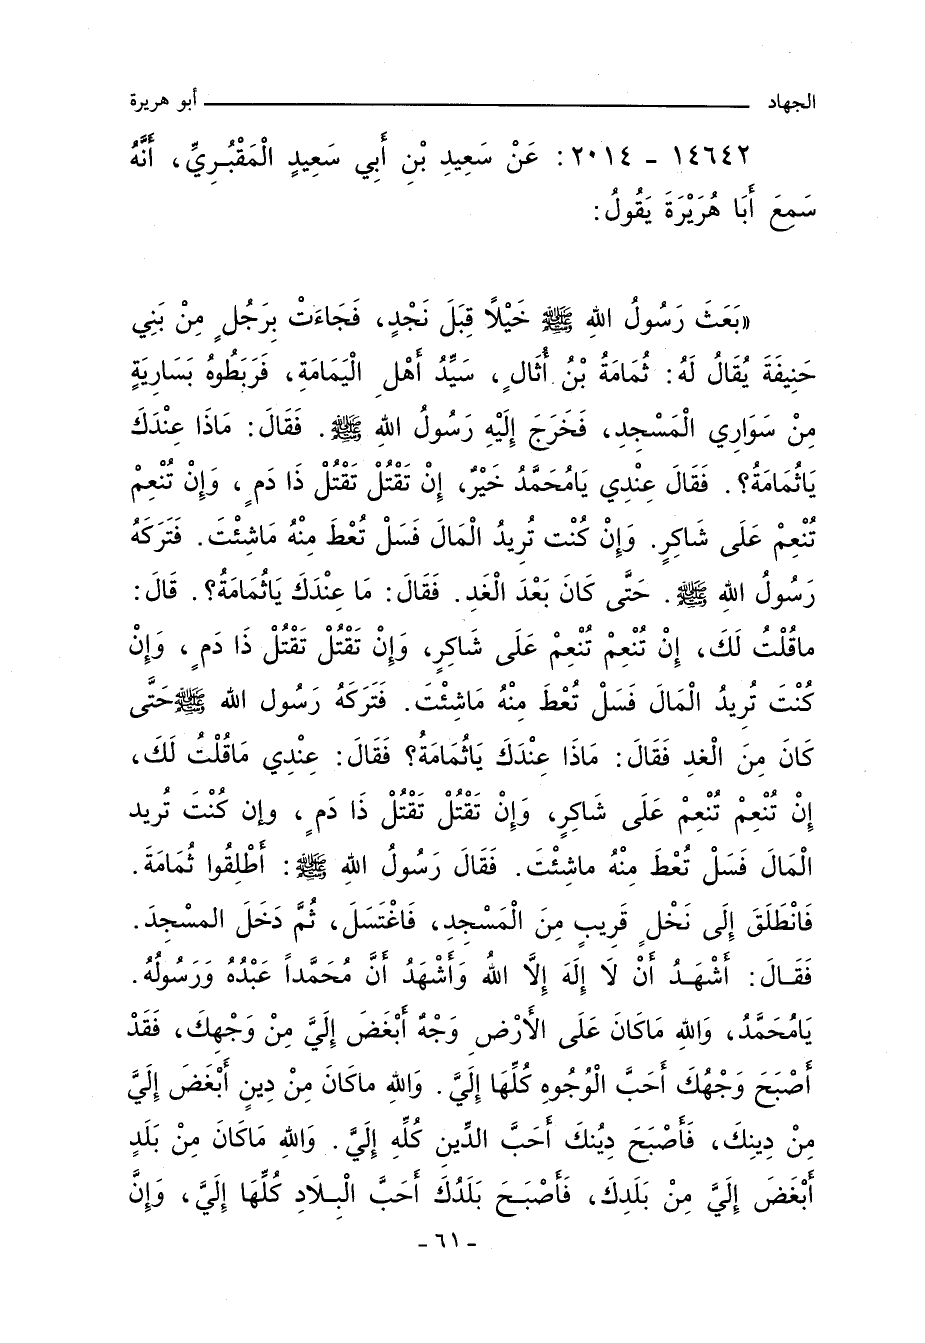 الجهاد ـــــــ أبو هريرة
١٤٦٤٢ - ٢٠١٤: عَنْ سَعِيدِ بْنِ أَبِي سَعِيدٍ الْمَقْبُرِيِّ، أَنَّهُ
سَمِعَ أَبَا هُرَيْرَةَ يَقُولُ:
«بَعَثَ رَسُولُ اللهِ ﷺ خَيْلًا قِبَلَ نَجْدٍ، فَجَاءَتْ بِرَجُلٍ مِنْ بَنِي
حَنِيفَةَ يُقَالُ لَهُ: ثُمَامَةُ بْنُ أُثَالٍ، سَيِّدُ أَهْلِ الْيَمَامَةِ، فَرَبَطُوهُ بَسَارِيَةٍ
مِنْ سَوَارِي الْمَسْجِدِ، فَخَرَجَ إِلَيْهِ رَسُولُ اللهِ ﷺ. فَقَالَ: مَاذَا عِنْدَكَ
يَاثُمَامَةُ؟. فَقَالَ عِنْدِي يَامُحَمَّدُ خَيْرٌ، إِنْ تَقْتُلْ تَقْتُلْ ذَا دَمٍ، وَإِنْ تُنْعِمْ
تُنْعِمْ عَلَى شَاكِرٍ. وَإِنْ كُنْت تُرِيدُ الْمَالَ فَسَلْ تُعْطَ مِنْهُ مَاشِئْتَ. فَتَرَكَهُ
رَسُولُ اللهِ ﷺ. حَتَّى كَانَ بَعْدَ الْغَدِ. فَقَالَ: مَا عِنْدَكَ يَاثُمَامَةُ؟. قَالَ:
ماقُلْتُ لَكَ، إِنْ تُنْعِمْ تُنْعِمْ عَلَى شَاكِرٍ، وَإِنْ تَقْتُلْ تَقْتُلْ ذَا دَمٍ، وَإِنْ
كُنْتَ تُرِيدُ الْمَالَ فَسَلْ تُعْطَ مِنْهُ مَاشِئْتَ. فَتَرَكَهُ رَسُول اللهِ ﷺ حَتَّى
كَانَ مِنَ الْغَدِ فَقَالَ: مَاذَا عِنْدَكَ يَاثُمَامَةُ؟ فَقَالَ: عِنْدِي مَاقُلْتُ لَكَ،
إِنْ تُنْعِمْ تُنْعِمْ عَلَى شَاكِرٍ، وَإِنْ تَقْتُلْ تَقْتُلْ ذَا دَمٍ، وإن كُنْتَ تُرِيد
الْمَالَ فَسَلْ تُعْطَ مِنْهُ ماشئْتَ. فَقَالَ رَسُولُ اللهِ ﷺ: أَطْلِقُوا ثُمَامَةَ.
فَانْطَلَقَ إِلَى نَخْلٍ قَرِيبٍ مِنَ الْمَسْجِدِ، فَاغْتَسَلَ، ثُمَّ دَخَلَ المسْجِدَ.
فَقَالَ: أَشْهَدُ أَنْ لَا إِلَهَ إِلَّا اللهُ وَأَشْهَدُ أَنَّ مُحَمَّداً عَبْدُهُ وَرَسُولُهُ.
يَامُحَمَّدُ، وَاللهِ مَاكَانَ عَلَى الأَرْضِ وَجْهٌ أَبْغَضَ إِلَيَّ مِنْ وَجْهِكَ، فَقَدْ
أَصْبَحَ وَجْهُكَ أَحَبَّ الْوُجُوهِ كُلِّهَا إِلَيَّ. وَاللهِ ماكَانَ مِنْ دِينٍ أَبْغَضَ إِلَيَّ
مِنْ دِينِكَ، فَأَصْبَحَ دِيْنُكَ أَحَبَّ الدِّينِ كُلِّهِ إِلَيَّ. وَاللهِ مَاكَانَ مِنْ بَلَدٍ
أَبْغَضَ إِلَيَّ مِنْ بَلَدِكَ، فَأَصْبَحَ بَلَدُكَ أَحَبَّ الْبِلَادِ كُلِّهَا إِلَيَّ، وَإِنَّ
- ٦١ -